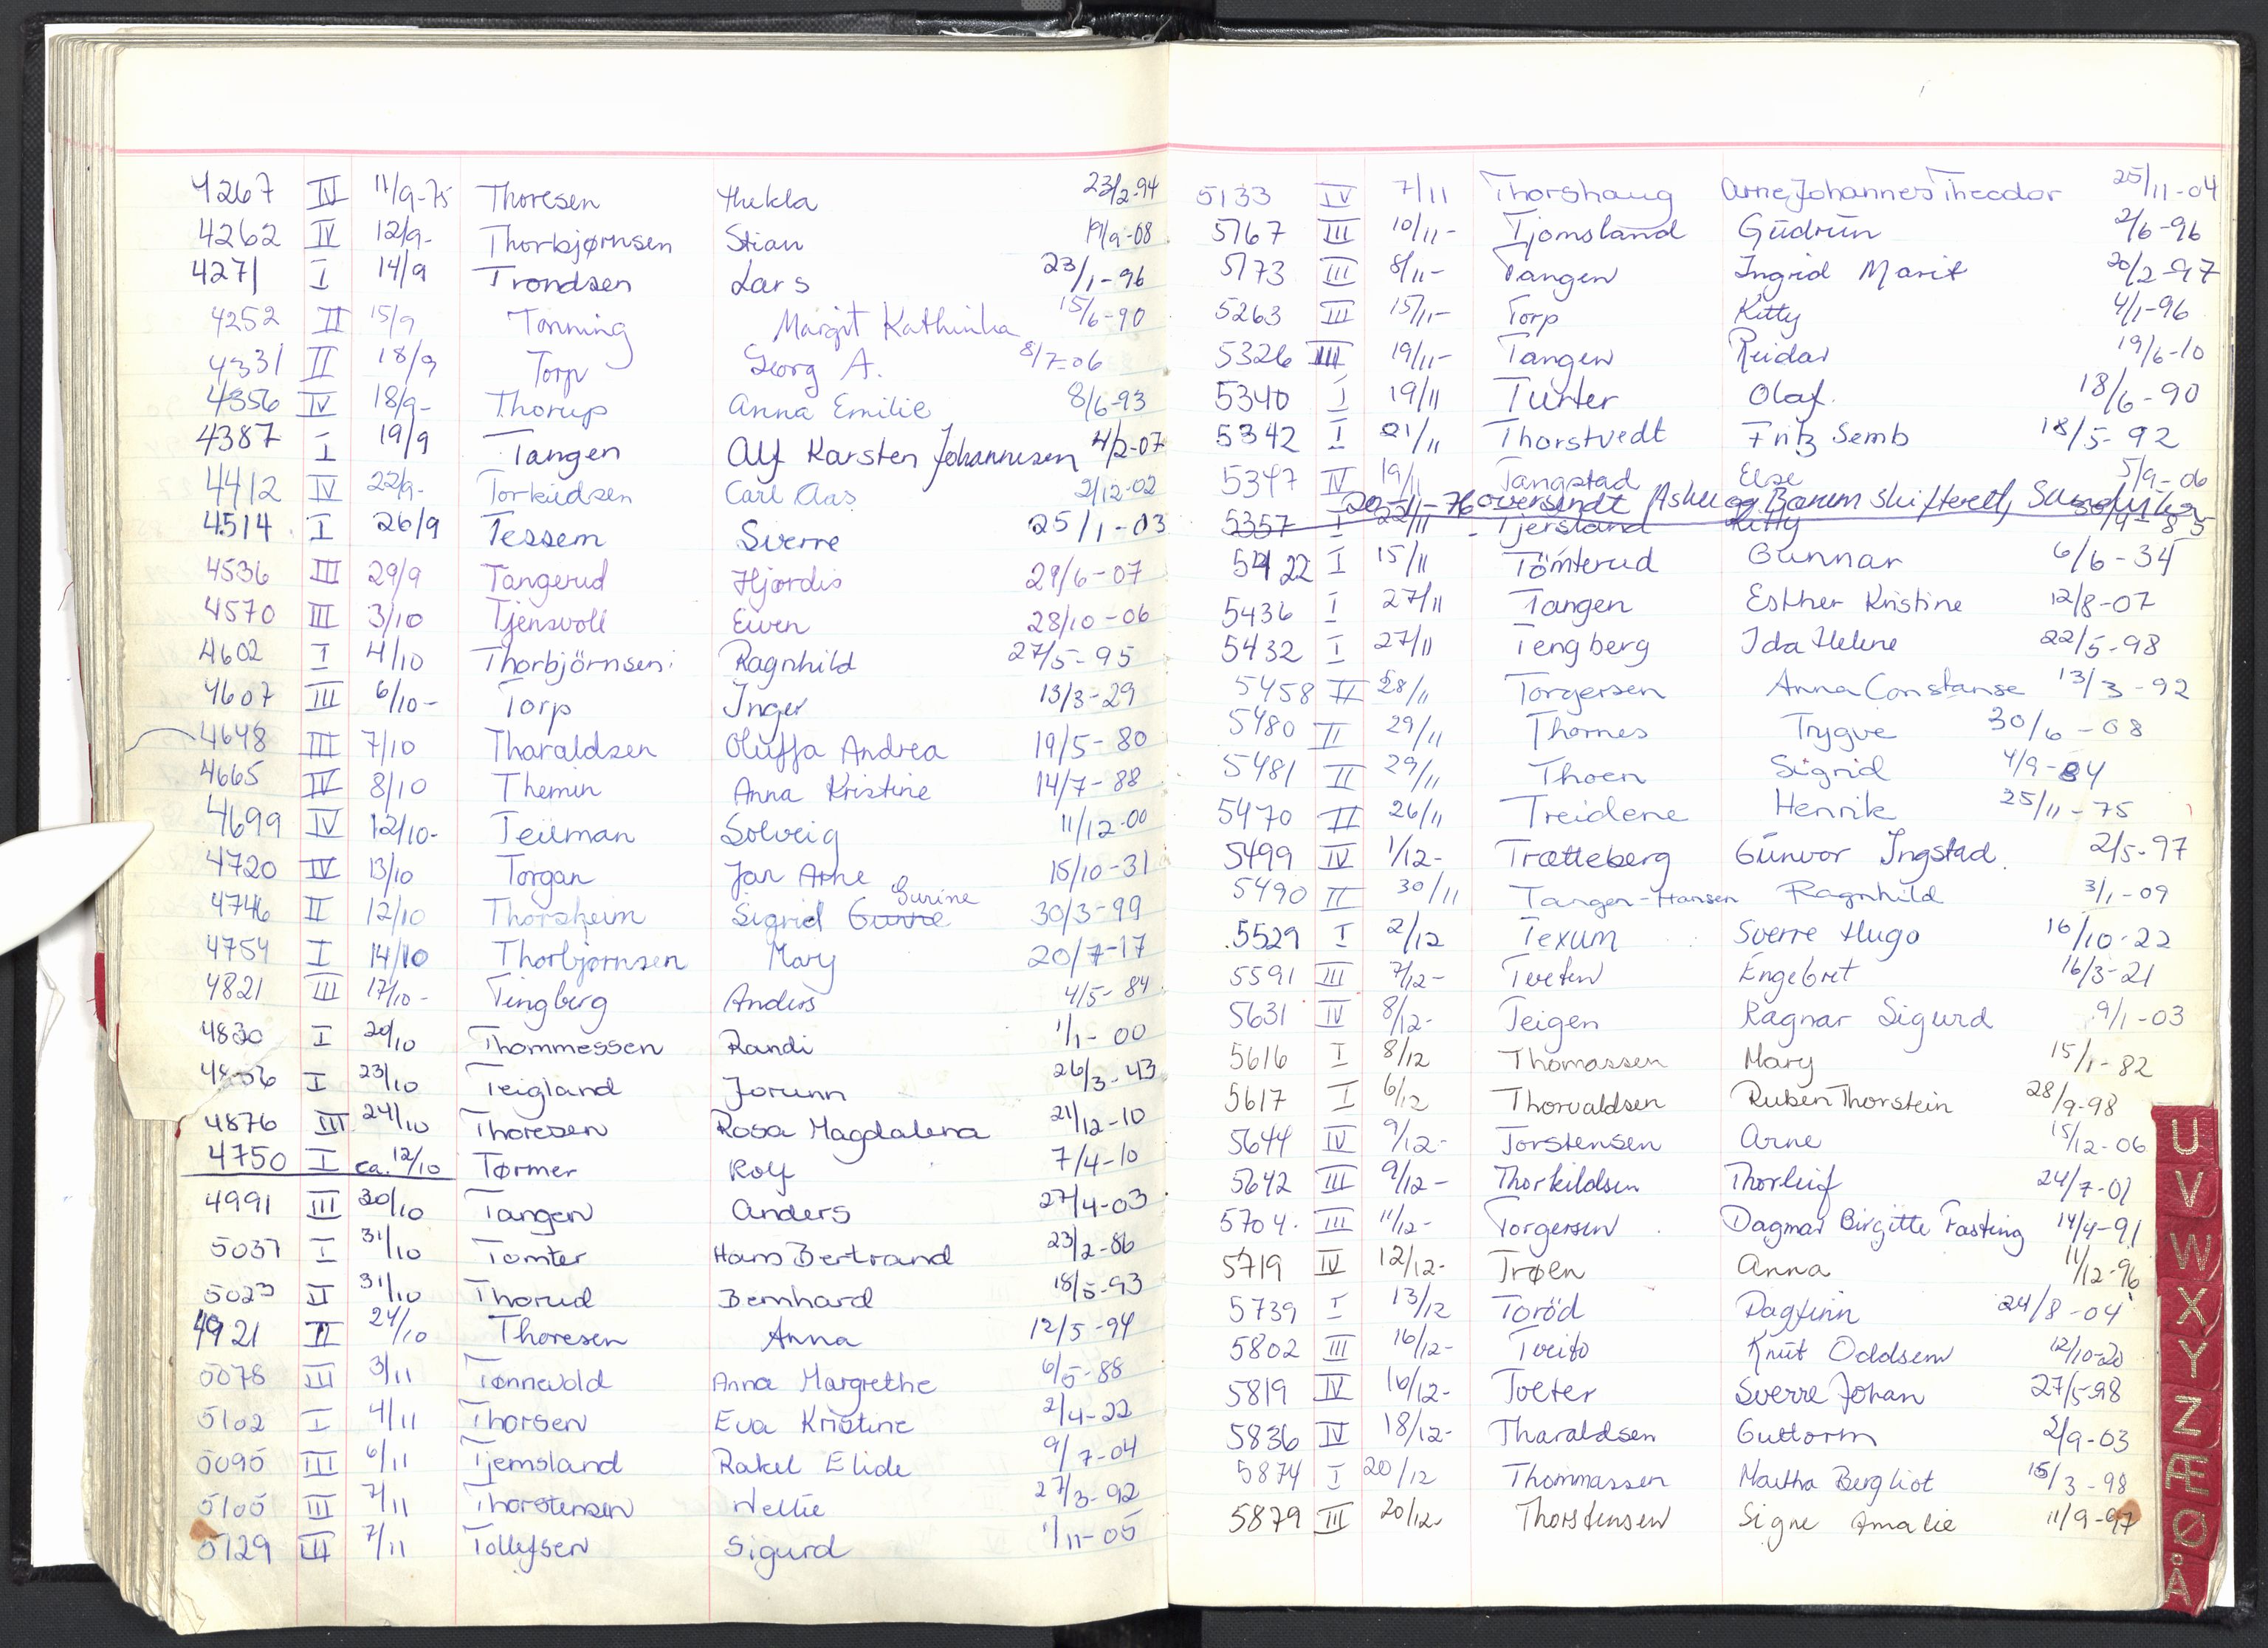 4267 IV 11/9-75 Thoresen Hekla 23/2-94
4262 IV 12/9- Thorbjørnsen Stian 19/9-08
4271 I 14/9 Trondsen Lars 23/1-96
4252 II 15/9 Tønning Margit Kathinka 15/6-90
4331 II 18/9 Torp Georg A. 8/7-06
4356 IV 18/9- Thorup Anna Emilie 8/6-93
4387 I 19/9 Tangen Alf Karsten Johannesen 4/2-07
4412 IV 22/9- Torkildsen Carl Aas 2/12-02
4514 I 26/9 Tessem Sverre 25/1-03
4536 III 29/9 Tangerud Hjørdis 29/6-07
4570 III 3/10 Tjensvoll Even 28/10-06
4602 I 4/10 Thorbjörnsen Ragnhild 27/5-95
4607 III 6/10- Torp Inger 13/3-29
4648 III 7/10 Tharaldsen Oluffa Andrea 19/5-80
4665 IV 8/10 Themin Anna Kristine 14/7-88
4699 IV 12/10- Teilman Solveig 11/12-00
4720 IV 13/10 Torgan Jan Arne 15/10-31
4746 II 12/10 Thorsheim Sigrid Gurine 30/3-99
4754 I 14/10 Thorbjørnsen Mary 20/7-17
4821 III 17/10- Tingberg Anders 4/5-84
4830 I 20/10 Thommessen Randi 1/1-00
I 23/10 Teigland Jorunn 26/3-43
4876 III 24/10 Thoresen Rosa Magdalena 21/12-10
4750 I ca. 12/10 Tørmer Rolf 7/4-10
4991 III 30/10 Tangen Anders 27/4-03
5037 I 31/10 Tomter Hans Bertrand 23/2-86
5023 II 31/10 Thorud Bernhard 18/5-93
4921 II 24/10 Thoresen Anna 12/5-94
5078 III 3/11 Tønnevold Anna Margrethe 6/5-88
5102 I 4/11 Thorsen Eva Kristine 2/4-22
5095 III 6/11 Tjemsland Rakel Elide 9/7-04
5105 III 7/11 Thorstensen Nellie 27/3-92
5129 III 7/11 Tollefsen Sigurd 1/11-05
5133 IV 7/11 Thorshaug Arne Johannes Theodor 25/11-04
5167 III 10/11- Tjomsland Gudrun 2/6-96
5173 III 8/11- Tangen Ingrid Marit 20/2-97
5263 III 15/11- Torp Kitty 4/1-96
5326 III 19/11- Tangen Reidar 19/6-10
5340 I 19/11 Tunter Olaf 18/6-90
5342 I 21/11 Thorstvedt Fritz Semb 18/5-92
5347 IV 19/11 Tangstad Else 5/9-06
20-1-76 oversendt Asker og Bærum skifterett, Sandvika
5357 I 22/11 Tjersland Kitty
5422 I 15/11 Tömterud Gunnar 6/6-34
5436 I 27/11 Tangen Esther Kristine 12/8-07
5432 I 27/11 Tengberg Ida Helene 22/5-98
5458 II 28/11 Torgersen Anna Constanse 13/3-92
5480 II 29/11 Thornes Trygve 30/6-08
5481 II 29/11 Thoen Sigrid 4/9-84
5470 II 26/11 Treidene Henrik 25/11-75
5499 IV 1/12- Trætteberg Gunvor Ingstad. 2/5-97
5490 II 30/11 Tangen-Hansen Ragnhild 3/1-09
5529 I 2/12 Texum Sverre Hugo 16/10-22
5591 III 7/12- Tveten Engebret 16/3-21
5631 IV 8/12- Teigen Ragnar Sigurd 9/1-03
5616 I 8/12 Thomassen Mary 15/1-82
5617 I 6/12 Thorvaldsen Ruben Thorstein 28/9-98
5644 IV 9/12- Torstensen Arne 15/12-06
5642 III 9/12- Thorkildsen Thorleif 24/7-01
5704. III 11/12- Torgersen Dagmar Birgitte Fasting 14/4-91
5719 IV 12/12- Trøen Anna 11/12-96
5739 I 13/12 Toröd Dagfinn 24/8-04
5802 III 16/12- Tveito Knut Oddsen 12/10-20
5819 IV 16/12- Tveter Sverre Johan 27/5-98
5836 IV 18/12- Tharaldsen Guttorm 2/9-03
5874 I 20/12 Thommassen Martha Bergliot 15/3-98
5879 III 20/12 Thorstensen Signe Amalie 11/9-97
U
V
W
X
Y
Z
Æ
Ø
Å